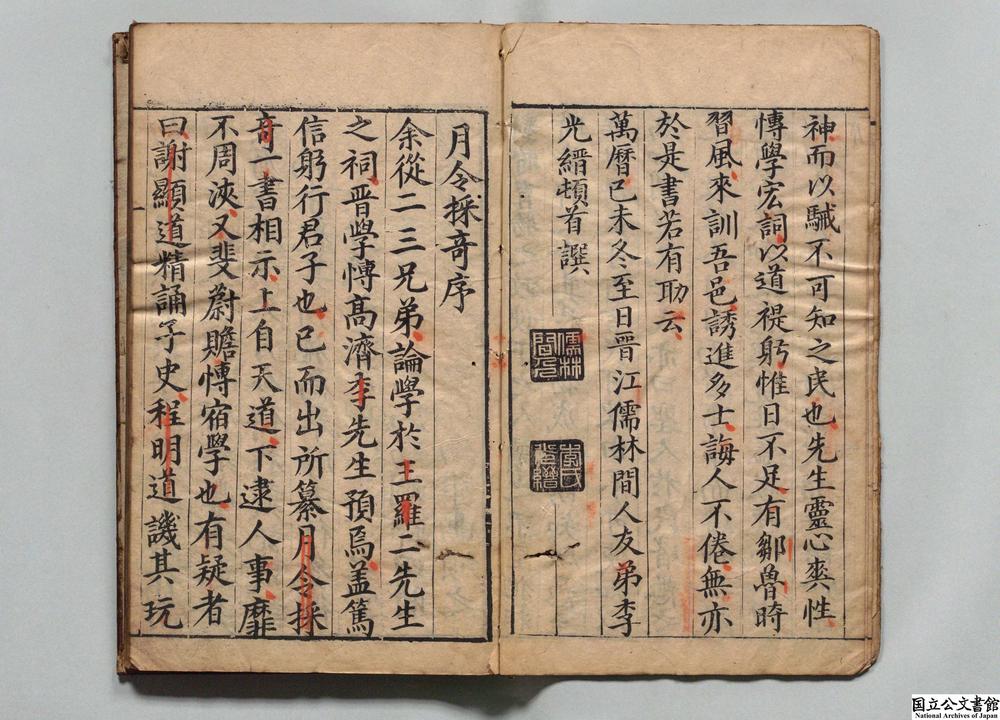 神而以馘不可知之民也先生靈心爽性
愽學宏詞以道禔躬惟日不足有鄒魯時
習風來訓吾邑誘進多士誨人不倦無亦
於是書若有助云
萬曆己未冬至日晉江儒林間人友弟李
光縉頓首譔
儒林
間人
李氏
光縉
月令採竒序
余從二三兄弟論學於王羅二先生
之祠晋學愽髙濟李先生預焉盖篤
信躬行君子也已而出所纂月令採
竒一書相示上自天道下逮人事靡
不周浹又斐蔚贍愽宿學也有疑者
曰謝顯道精誦子史程明道譏其玩
国立公文書館
National Archives of Japan